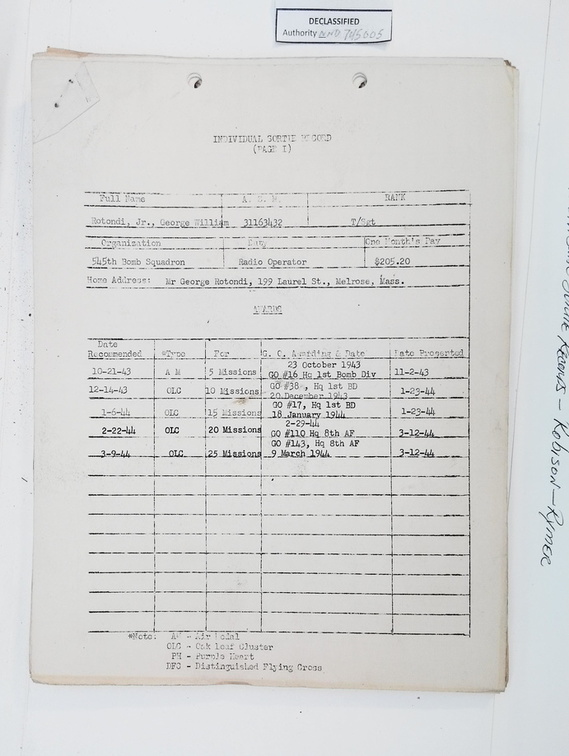 DECLASSIFIED
Authority NND 745005
INDIVIDUAL SORTIE RECORD
(PAGE I)
Full Name A. S. N. RANK
Rotondi, Jr., George William 31163432 T/Sgt
Organization Duty One Month's Pay
545th Bomb Squadron Radio Operator $205.20
Home Address: Mr George Rotondi, 199 Laurel St., Melrose, Mass.
AWARDS
Date
Recommended *Type For G. O. Awarding & Date Date Presented
23 October 1943
10-21-43 A M 5 Missions GO #16 Hq 1st Bomb Div 11-2-43
GO #38, Hq 1st BD
12-14-43 OLC 10 Missions 20 December 1943 1-23-44
GO #17, Hq 1st BD
1-6-44 OLC 15 Missions 18 January 1944 1-23-44
2-29-44
2-22-44 OLC 20 Missions GO #110 Hq 8th AF 3-12-44
GO #143, Hq 8th AF
3-9-44 OLC 25 Missions 9 March 1944 3-12-44
*Note: AM - Air Medal
OLC - Oak Leaf Cluster
PH - Purple Heart
DFC - Distinguished Flying Cross
Records - Robison - Rymer